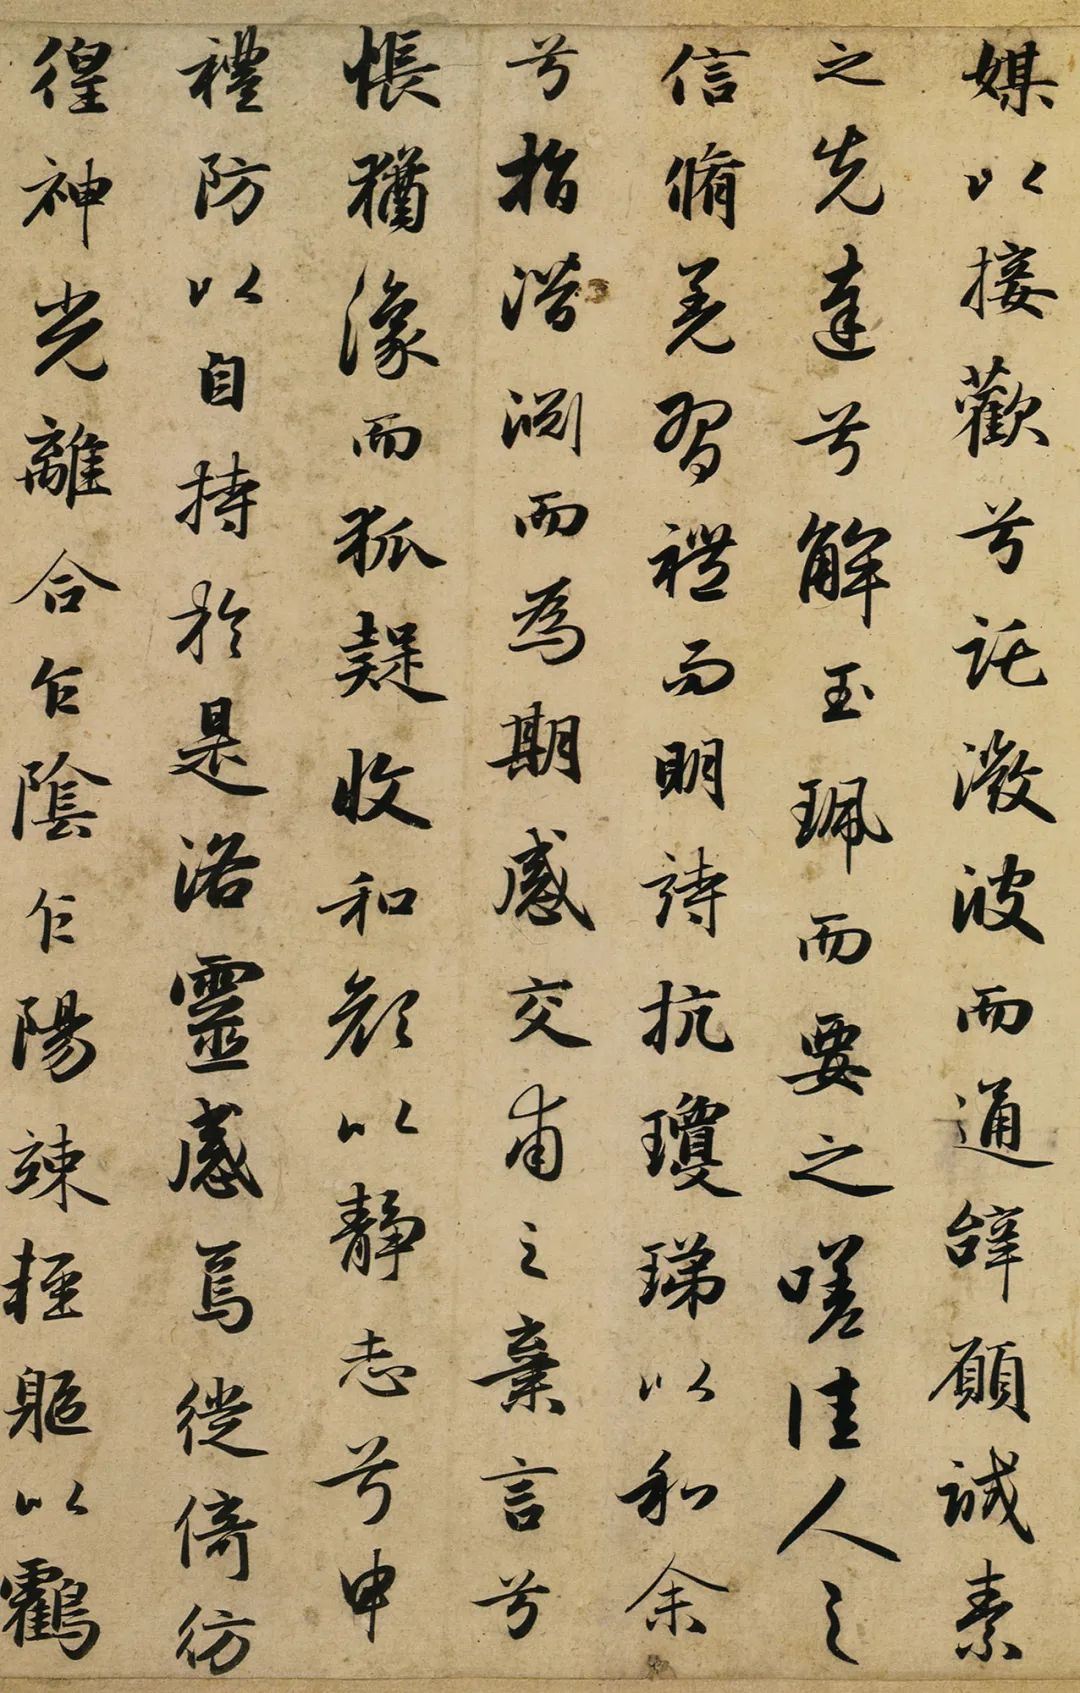 媒以接歡兮託微波而通辭願誠素
之先達兮解玉珮而要之嗟佳人之
信脩羌習禮而明詩抗瓊珶以和余
兮指潛淵而為期感交甫之棄言兮
悵猶豫而狐疑收和顔以静志兮申
禮防以自持於是洛靈感焉徙倚彷
徨神光離合乍陰乍陽竦輕軀以鶴